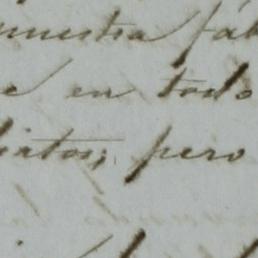 muestra fáb
e en todo
iatos; pero